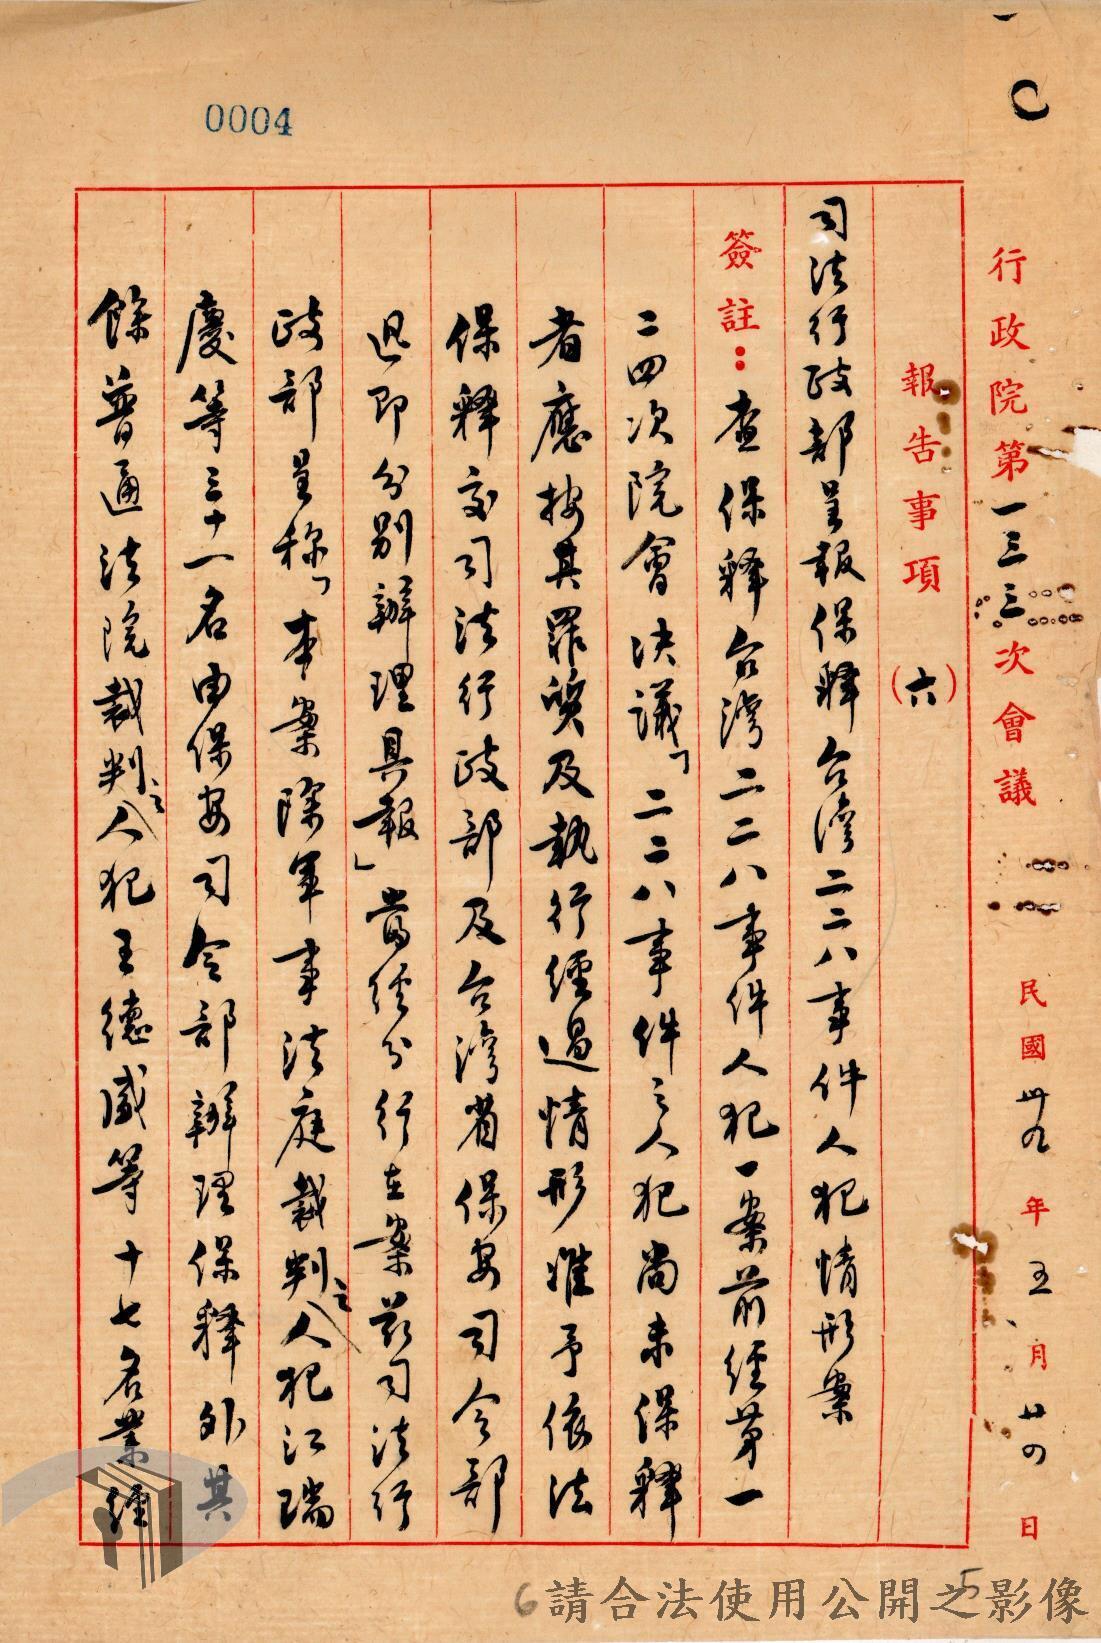 0004
行政院第一三三次會議 民國卅九年五月廿四日
報告事項(六)
司法行政部呈報保釋台灣二二八事件人犯情形案
簽註：查保釋台灣二二八事件人犯一案前經第一
二四次院會決議「二二八事件之人犯尚未保釋
者應按其罪質及執行經過情形准予依法
保釋交司法行政部及台灣省保安司令部
迅即分別辦理具報」當經分行在案茲司法行
政部呈称「本案除軍事法庭裁判之人犯江瑞
慶等三十一名由保安司令部辦理保釋外其
餘普通法院裁判之人犯王德威等十七名業經
6
5
請合法使用公開之影像